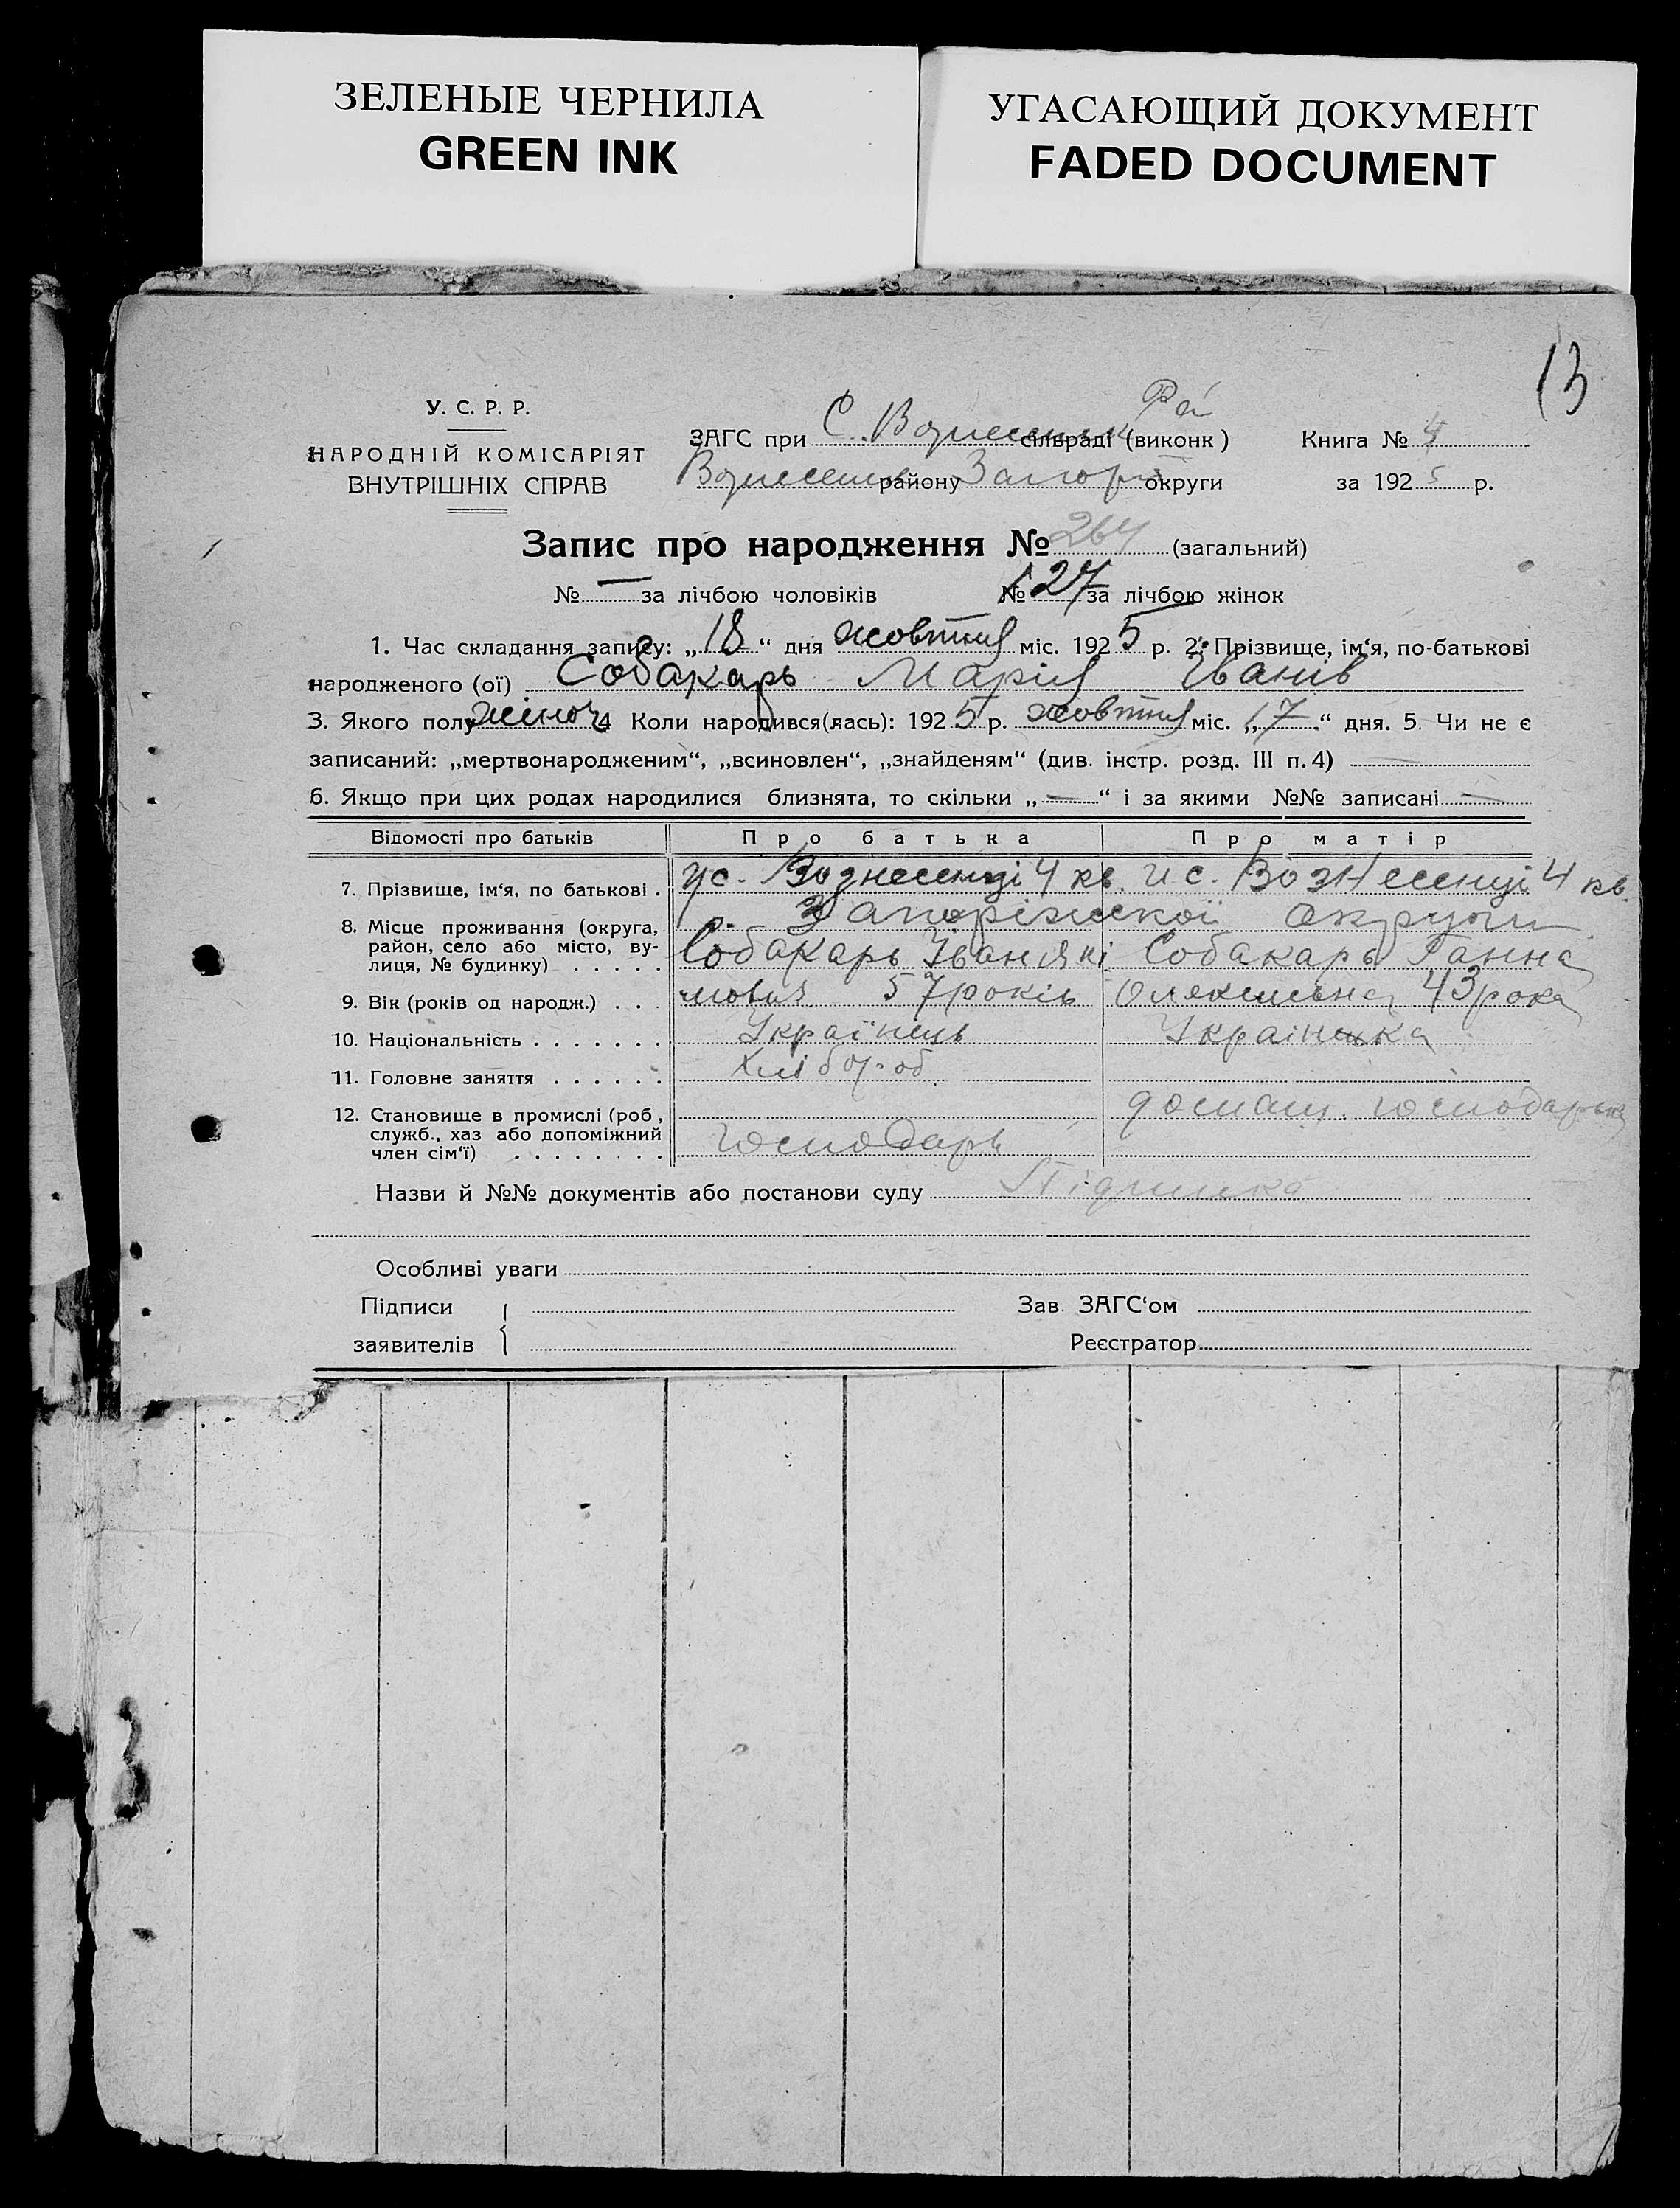 ЗЕЛЕНЫЕ ЧЕРНИЛА
GREEN INK
УГАСАЮЩИЙ ДОКУМЕНТ
FADED DOCUMENT
13
У. С. Р. Р.
НАРОДНІЙ КОМІСАРІЯТ
ВНУТРІШНІХ СПРАВ
ЗАГС при С. сільраді (виконк) Книга № 4
району округи за 1925 р.
Запис про народження № 264 (загальний)
№ — за лічбою чоловіків № 127 за лічбою жінок
1. Час складання запису: „18“ дня жовтня міс. 1925 р. 2. Прізвище, ім‘я, по-батькові
народженого (ої) Собакарь Марія Іванів
3. Якого полу жіноч 4 Коли народився(лась): 1925 р. жовтня міс. „17“ дня. 5. Чи не є
записаний: „мертвонародженим“, „всиновлен“, „знайденям“ (див. інстр. розд. III п. 4) —
6. Якщо при цих родах народилися близнята, то скільки „—“ і за якими №№ записані —
Відомості про батьків Про батька Про матір
7. Прізвище, ім‘я, по батькові . с. Вознесенці 4 кв. с. Вознесенці 4 кв.
8. Місце проживання (округа, район, село або місто, вулиця, № будинку) . . . . . Запоріжской округи
Собакарь Іван Які Собакарь Ганна
9. Вік (років од народж.) . . . мович 57 років 43 рока
10. Національність . . . . . . . Українець Українка
11. Головне заняття . . . . . . Хлібороб
12. Становище в промислі (роб, служб., хаз або допоміжний член сім‘ї) . . . . . . . . господарь домаш. господарка
Назви й №№ документів або постанови суду
Особливі уваги
Підписи Зав. ЗАГС‘ом
заявителів Реєстратор